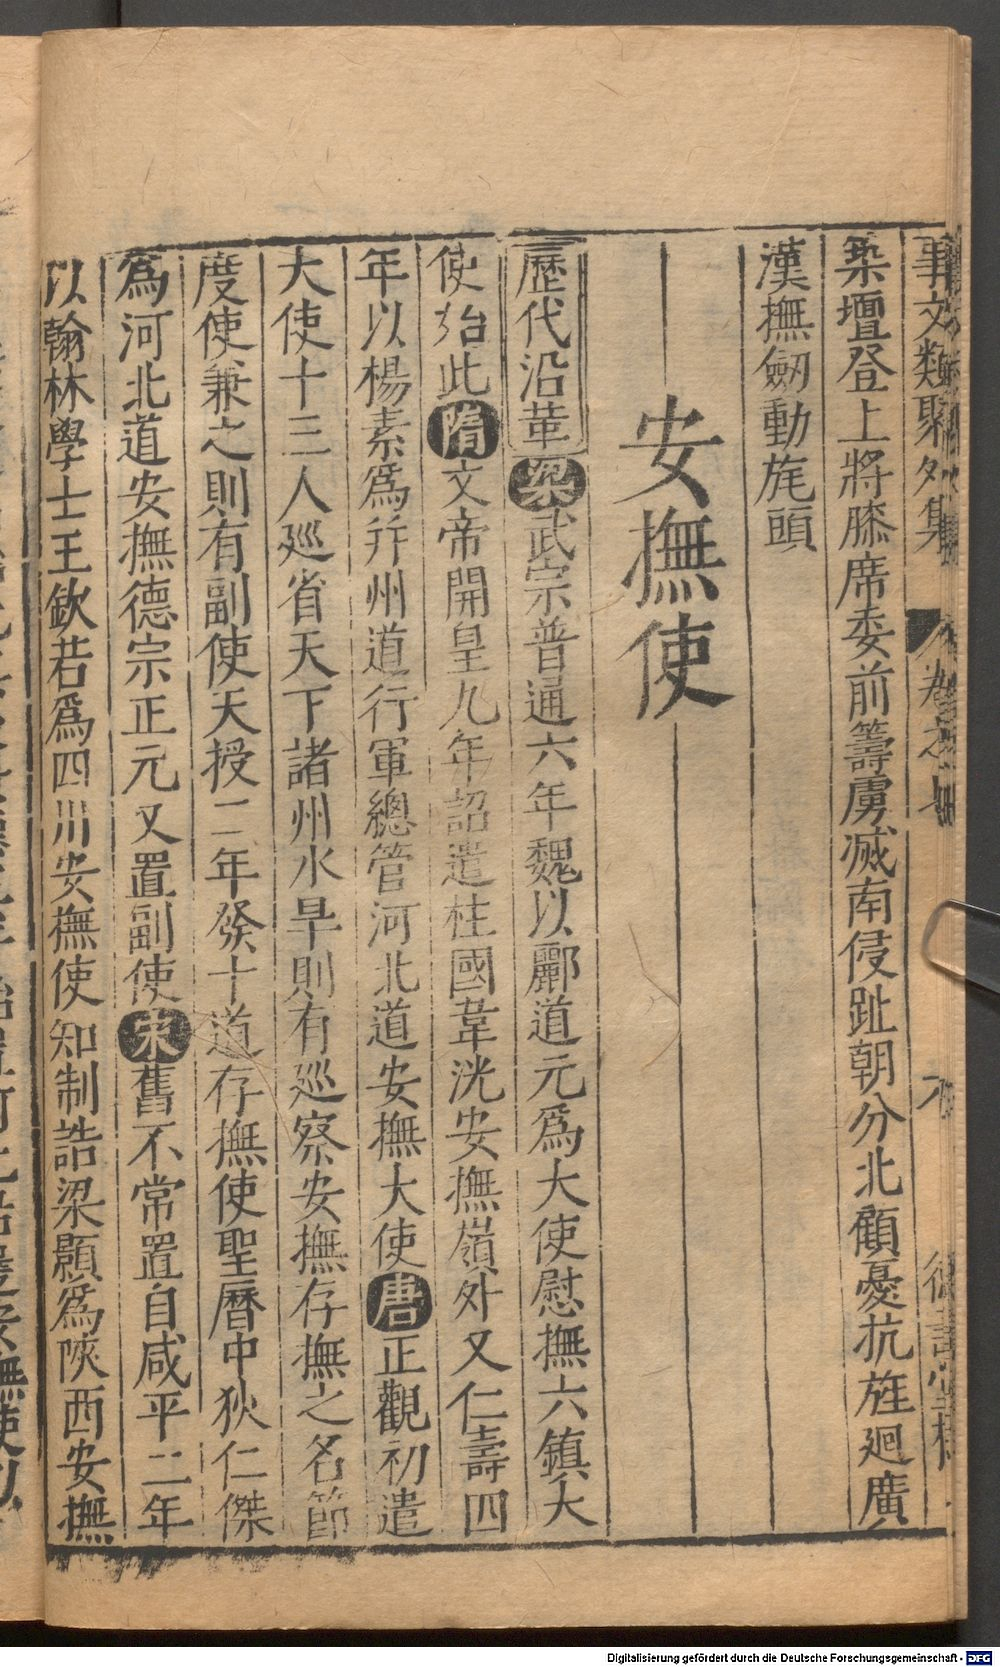 事文類聚外集 卷之
築壇登上將膝席委前籌虜滅南侵趾朝分北顧憂抗旌廻廣
漢撫劒動旄頭
安撫使
歷代沿革 梁武宗普通六年魏以酈道元爲大使慰撫六鎮大
使始此隋文帝開皇九年詔遣柱國韋洸安撫嶺外又仁壽四
年以楊素爲并州道行軍總管河北道安撫大使唐正觀初遣
大使十三人巡省天下諸州水旱則有巡察安撫存撫之名節
度使兼之則有副使天授二年發十道存撫使聖曆中狄仁傑
爲河北道安撫德宗正元又置副使宋舊不常置自咸平二年
以翰林學士王欽若爲四川安撫使知制誥梁顥爲陝西安撫
Digitalisierung gefördert durch die Deutsche Forschungsgemeinschaft - DFG